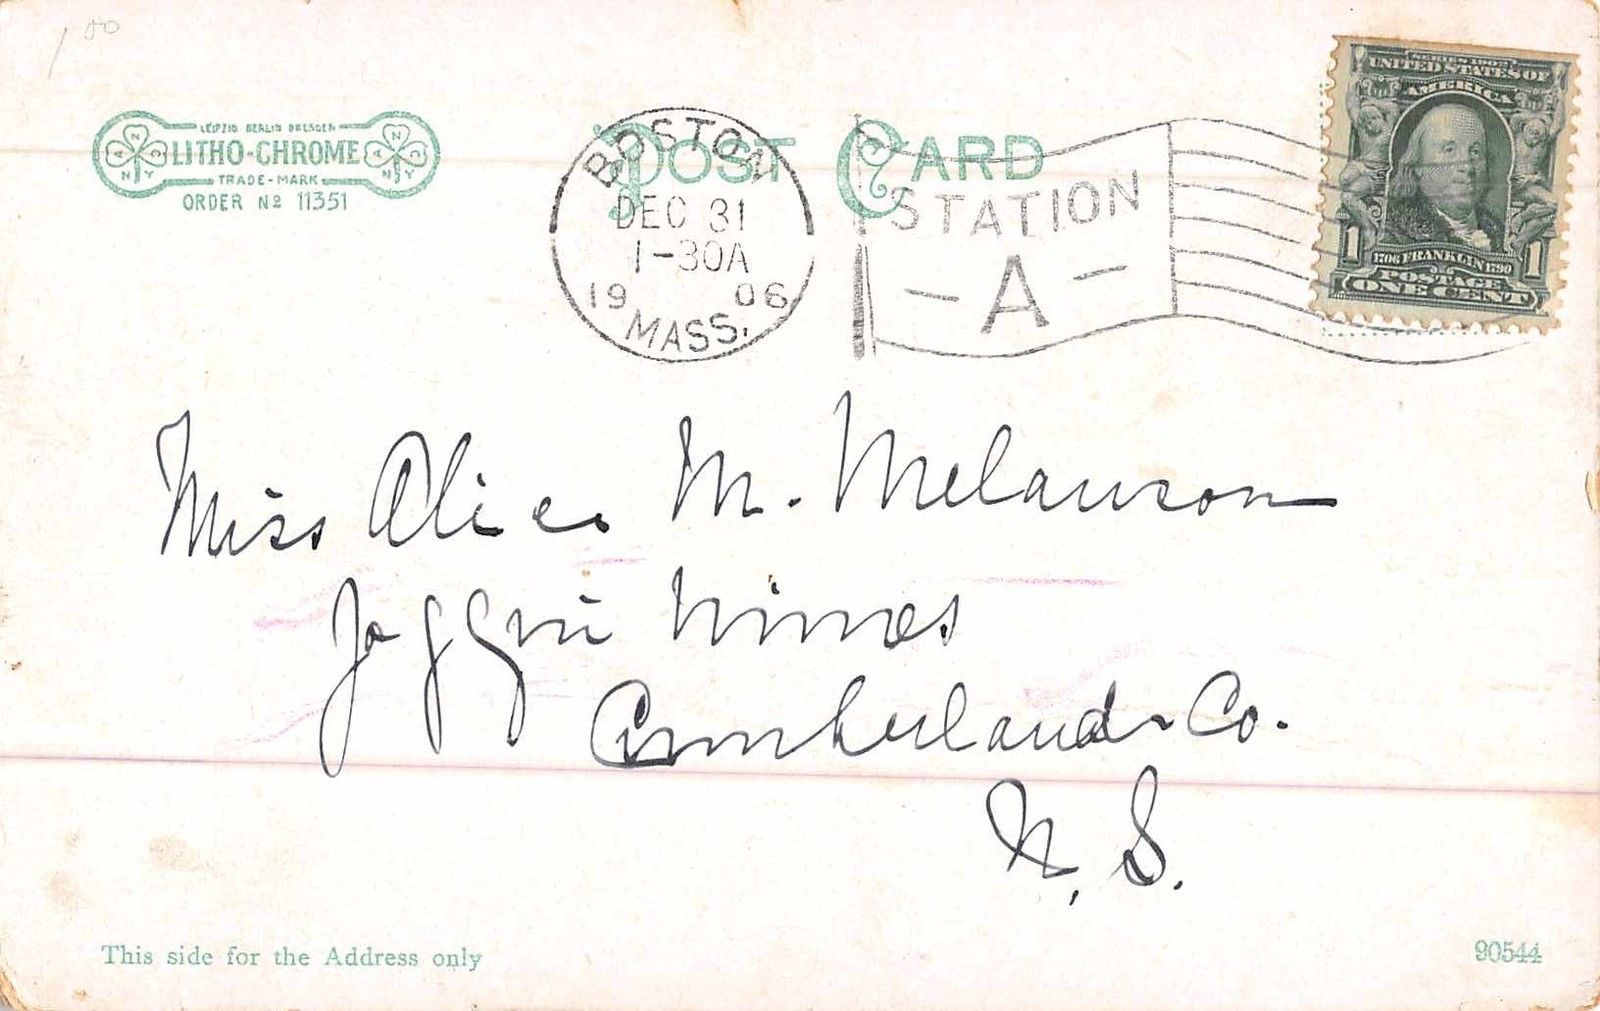 1 00
LEIPZIG BERLIN DRESDEN
LITHO-CHROME
TRADE-MARK
ORDER No 11351
POST CARD
BOSTON
DEC 31
1-30A
19 06
MASS.
STATION
- A -
SERIES 1902
UNITED STATES OF
AMERICA
1706 FRANKLIN 1790
POSTAGE
1 ONE CENT 1
Miss Alice M. Melanson
Joggin Mines
Cumberland Co.
N. S.
This side for the Address only
90544